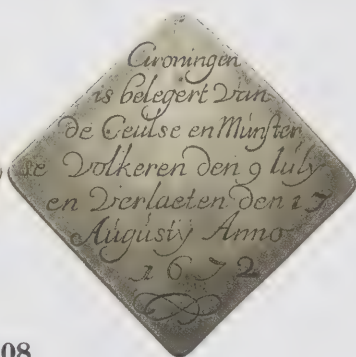 Groningen
is belegert Van
de Ceulse en Munster
se Volkeren den 9 Iuly
en Verlaeten den 17
Augusty Anno
1672
08